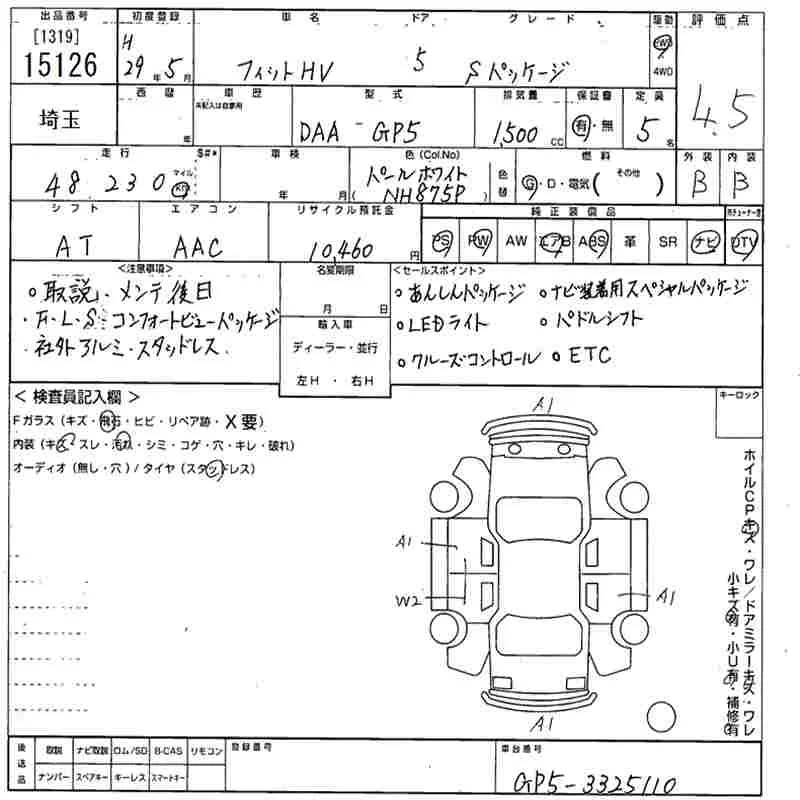 出品番号 初度登録 車名 ドア グレード 駆動 評価点
[1319] 15126 H 29年 5月 フィットHV 5 Sパッケージ 2WD 4WD 4.5
西暦 年 車歴 未記入は自家用 型式 排気量 保証書 定員
埼玉 DAA-GP5 1,500 CC 有・無 5名
走行 S#* 車検 色(Col.No) 色替 燃料 外装 内装
48 230 マイル km 年 月 パールホワイト (NH875P) G・D・電気( その他 ) B B
シフト エアコン リサイクル預託金 純正装備品
AT AAC 10,460円 PS PW AW エアB ABS 革 SR ナビ DTV
<注意事項> 名変期限 <セールスポイント>
○取説、メンテ後日 月 日 ○あんしんパッケージ ○ナビ装着用スペシャルパッケージ
・F・L・S・コンフォートビューパッケージ 輸入車 ○LEDライト ○パドルシフト
社外アルミ・スタッドレス ディーラー・並行 ○クルーズコントロール ○ETC
左H・右H
<検査員記入欄> キーロック
Fガラス(キズ・飛石・ヒビ・リペア跡・X要)
内装(キズ・スレ・汚れ・シミ・コゲ・穴・キレ・破れ)
オーディオ(無し・穴)/タイヤ(スタッドレス)
A1
A1
W2
A1
A1
ホイルCPキズ・ワレ/ドアミラーキズ・ワレ
小キズ有・小U有・補修有
後送品 取説 ナビ取説 ロム/SD B-CAS リモコン 登録番号 車台番号
ナンバー スペアキー キーレス スマートキー GP5-3325110